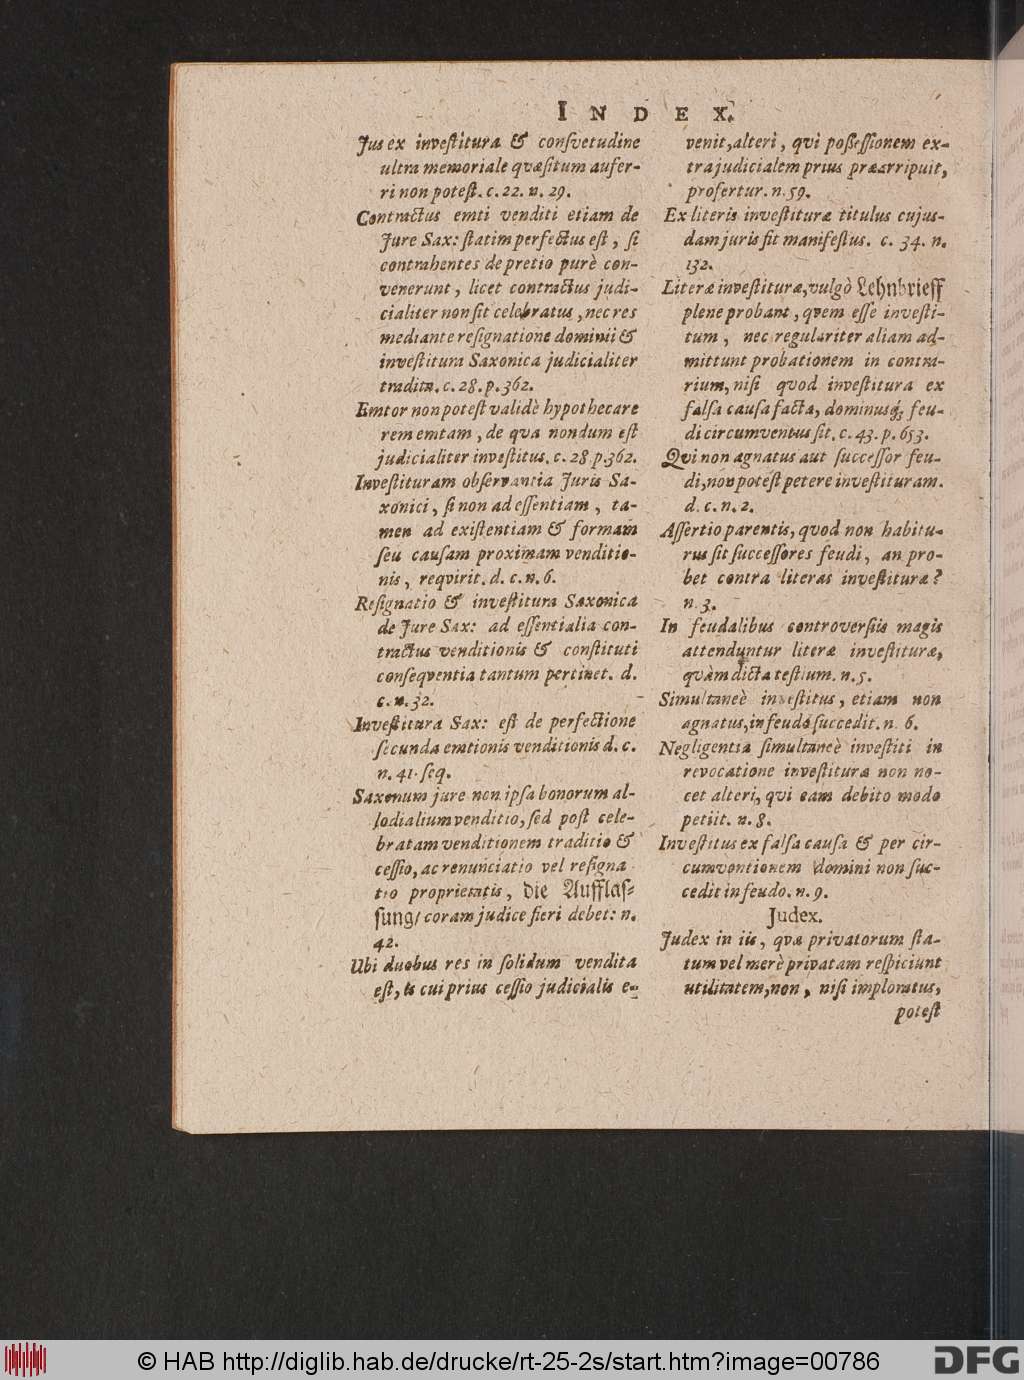 INDEX.
Jus ex investitura & consvetudine
ultra memoriale quæsitum aufer-
ri non potest. c. 22. n. 29.
Contractus emti venditi etiam de
Jure Sax: statim perfectus est, si
contrahentes de pretio purè con-
venerunt, licet contractus judi-
cialiter non sit celebratus, nec res
mediante resignatione dominii &
investitura Saxonica judicialiter
tradita. c. 28. p. 362.
Emtor non potest validè hypothecare
rem emtam, de qva nondum est
judicialiter investitus. c. 28 p. 362.
Investituram observantia Juris Sa-
xonici, si non ad essentiam, ta-
men ad existentiam & formam
seu causam proximam venditio-
nis, reqvirit. d. c. n. 6.
Resignatio & investitura Saxonica
de Jure Sax: ad essentialia con-
tractus venditionis & constituti
conseqventia tantum pertinet. d.
c. n. 32.
Investitura Sax: est de perfectione
secunda emtionis venditionis d. c.
n. 41. seq.
Saxonum jure non ipsa bonorum al-
lodialium venditio, sed post cele-
bratam venditionem traditio &
cessio, ac renunciatio vel resigna
tio proprietatis, die Aufflas-
sung/ coram judice fieri debet: n.
42.
Ubi duobus res in solidum vendita
est, is cui prius cessio judicialis e-
venit, alteri, qvi possessionem ex-
trajudicialem prius præarripuit,
profertur. n. 59.
Ex literis investituræ titulus cujus-
dam juris fit manifestus. c. 34. n.
132.
Literæ investituræ, vulgò Lehnbrieff
plene probant, qvem esse investi-
tum, nec regulariter aliam ad-
mittunt probationem in contra-
rium, nisi quod investitura ex
falsa causa facta, dominusq; feu-
di circumventus sit. c. 43. p. 653.
Qvi non agnatus aut successor feu-
di, non potest petere investituram.
d. c. n. 2.
Assertio parentis, qvod non habitu-
rus sit successores feudi, an pro-
bet contra literas investituræ?
n. 3.
In feudalibus controversiis magis
attenduntur literæ investituræ,
qvàm dicta testium. n. 5.
Simultaneè investitus, etiam non
agnatus, in feudo succedit. n. 6.
Negligentia simultaneè investiti in
revocatione investitura non no-
cet alteri, qvi eam debito modo
petiit. n. 8.
Investitus ex falsa causa & per cir-
cumventionem domini non suc-
cedit in feudo. n. 9.
Judex.
Judex in iis, qvæ privatorum sta-
tum vel merè privatam respiciunt
utilitatem, non, nisi imploratus,
potest
© HAB http://diglib.hab.de/drucke/rt-25-2s/start.htm?image=00786
DFG